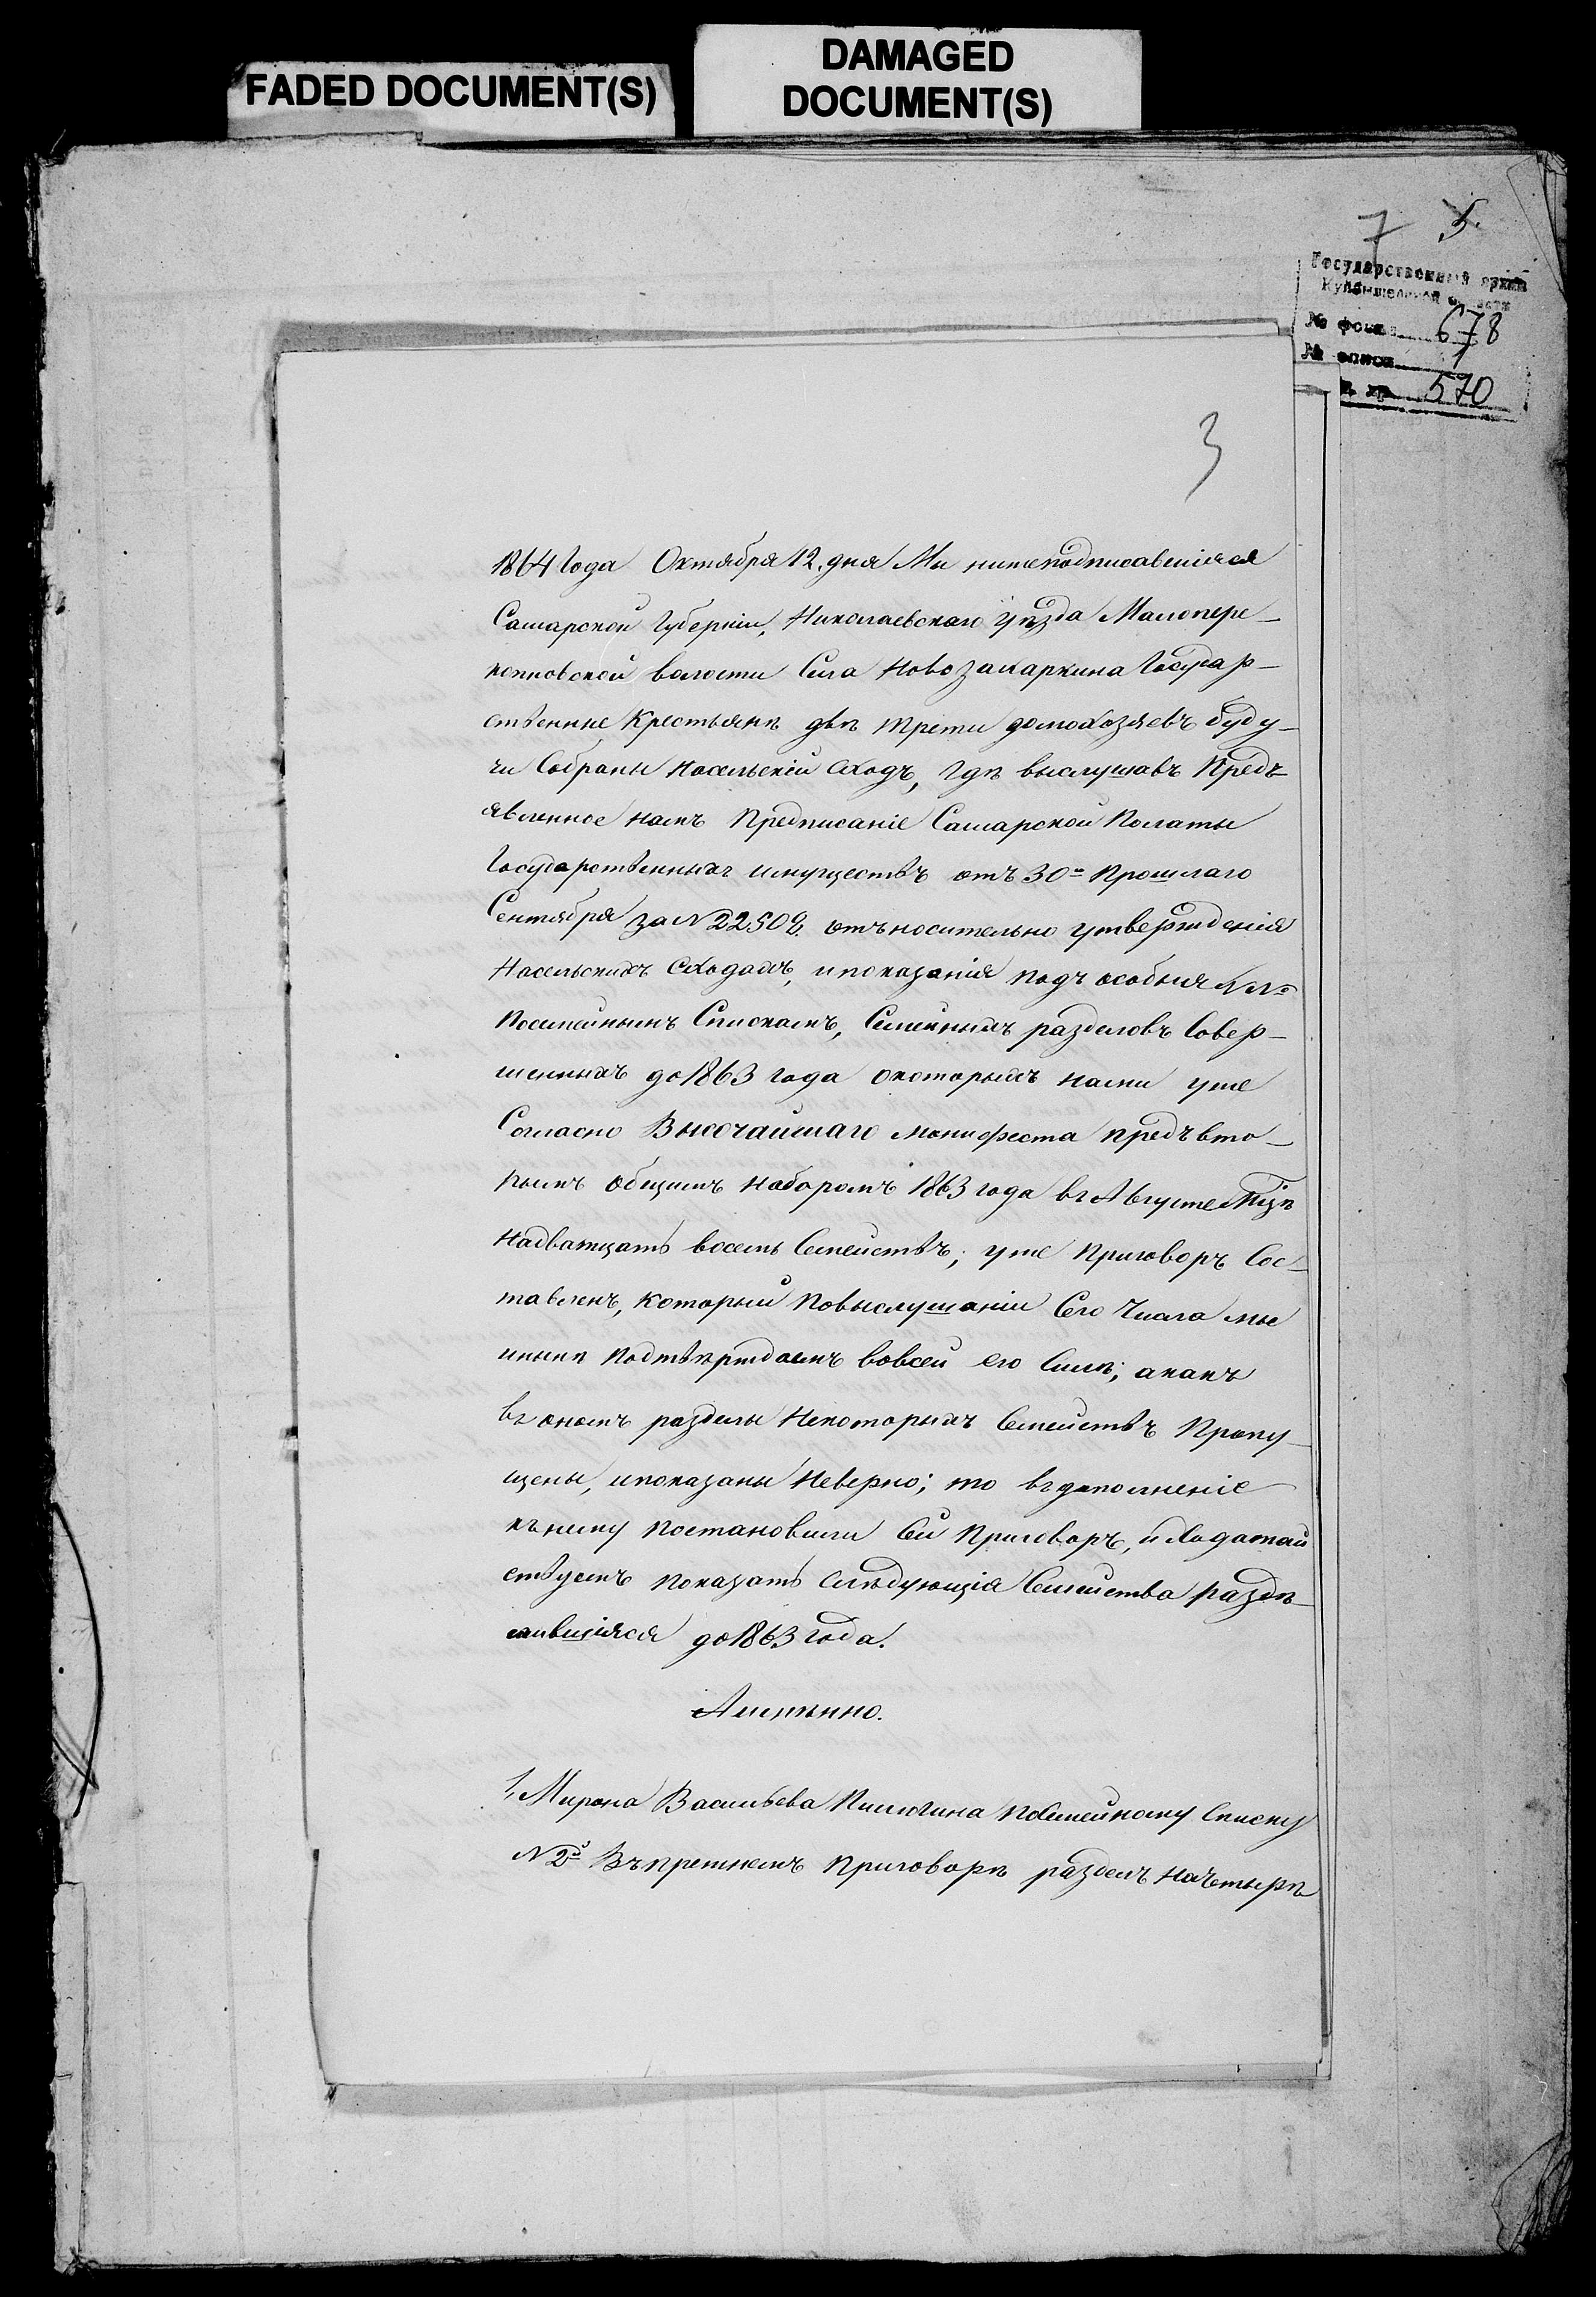 FADED DOCUMENT(S)
DAMAGED
DOCUMENT(S)
7 5.
Государственный архив
Куйбышевской области
№ фонда 678
№ описи 1
хр. 570
3
1864 Года Октября 12. дня Мы нижеподписавшіяся
Самарской Губерніи, Николаевскаго уѣзда Малопере-
копновской волости Села Новозахаркина Государ-
ственные Крестьянѣ двѣ трети домохозяевъ буду-
чи Собраны насельскій сходъ, гдѣ выслушавъ Предъ-
явленное намъ Предписаніе Самарской Палаты
Государственныхъ имуществъ отъ 30го Прошлаго
Сентября за № 22508. отъносительно утвержденія
Насельскихъ Сходахъ, и показанія подъ особыя №№о
Посемейнымъ Спискамъ, Семейныхъ разделовъ Совер-
шенныхъ до 1863 года окоторыхъ нами уже
Согласно Высочайшаго манифеста предъ вто-
рымъ общимъ наборомъ 1863 года въ Августе Мцѣ
Надватцать восемь Семействъ, уже Приговоръ Сос-
тавленъ, который Повыслушаніи Сего Числа мы
инынѣ Подтвѣрждаемъ вовсей его Силѣ; а какъ
въ ономъ разделы Некоторыхъ Семействъ Пропу-
щены, ипоказаны Неверно; то въдополненіе
къ нему Постановили Сей Приговоръ, и Ходатай
ствуемъ показать слѣдующія Семейства раздѣ-
лившіяся до 1863 года.
Аимѣнно.
1, Мирона Васильева Пилюгина поСемейному Списку
№ 2й Въпрежнемъ Приговорѣ разделъ Начетырѣ